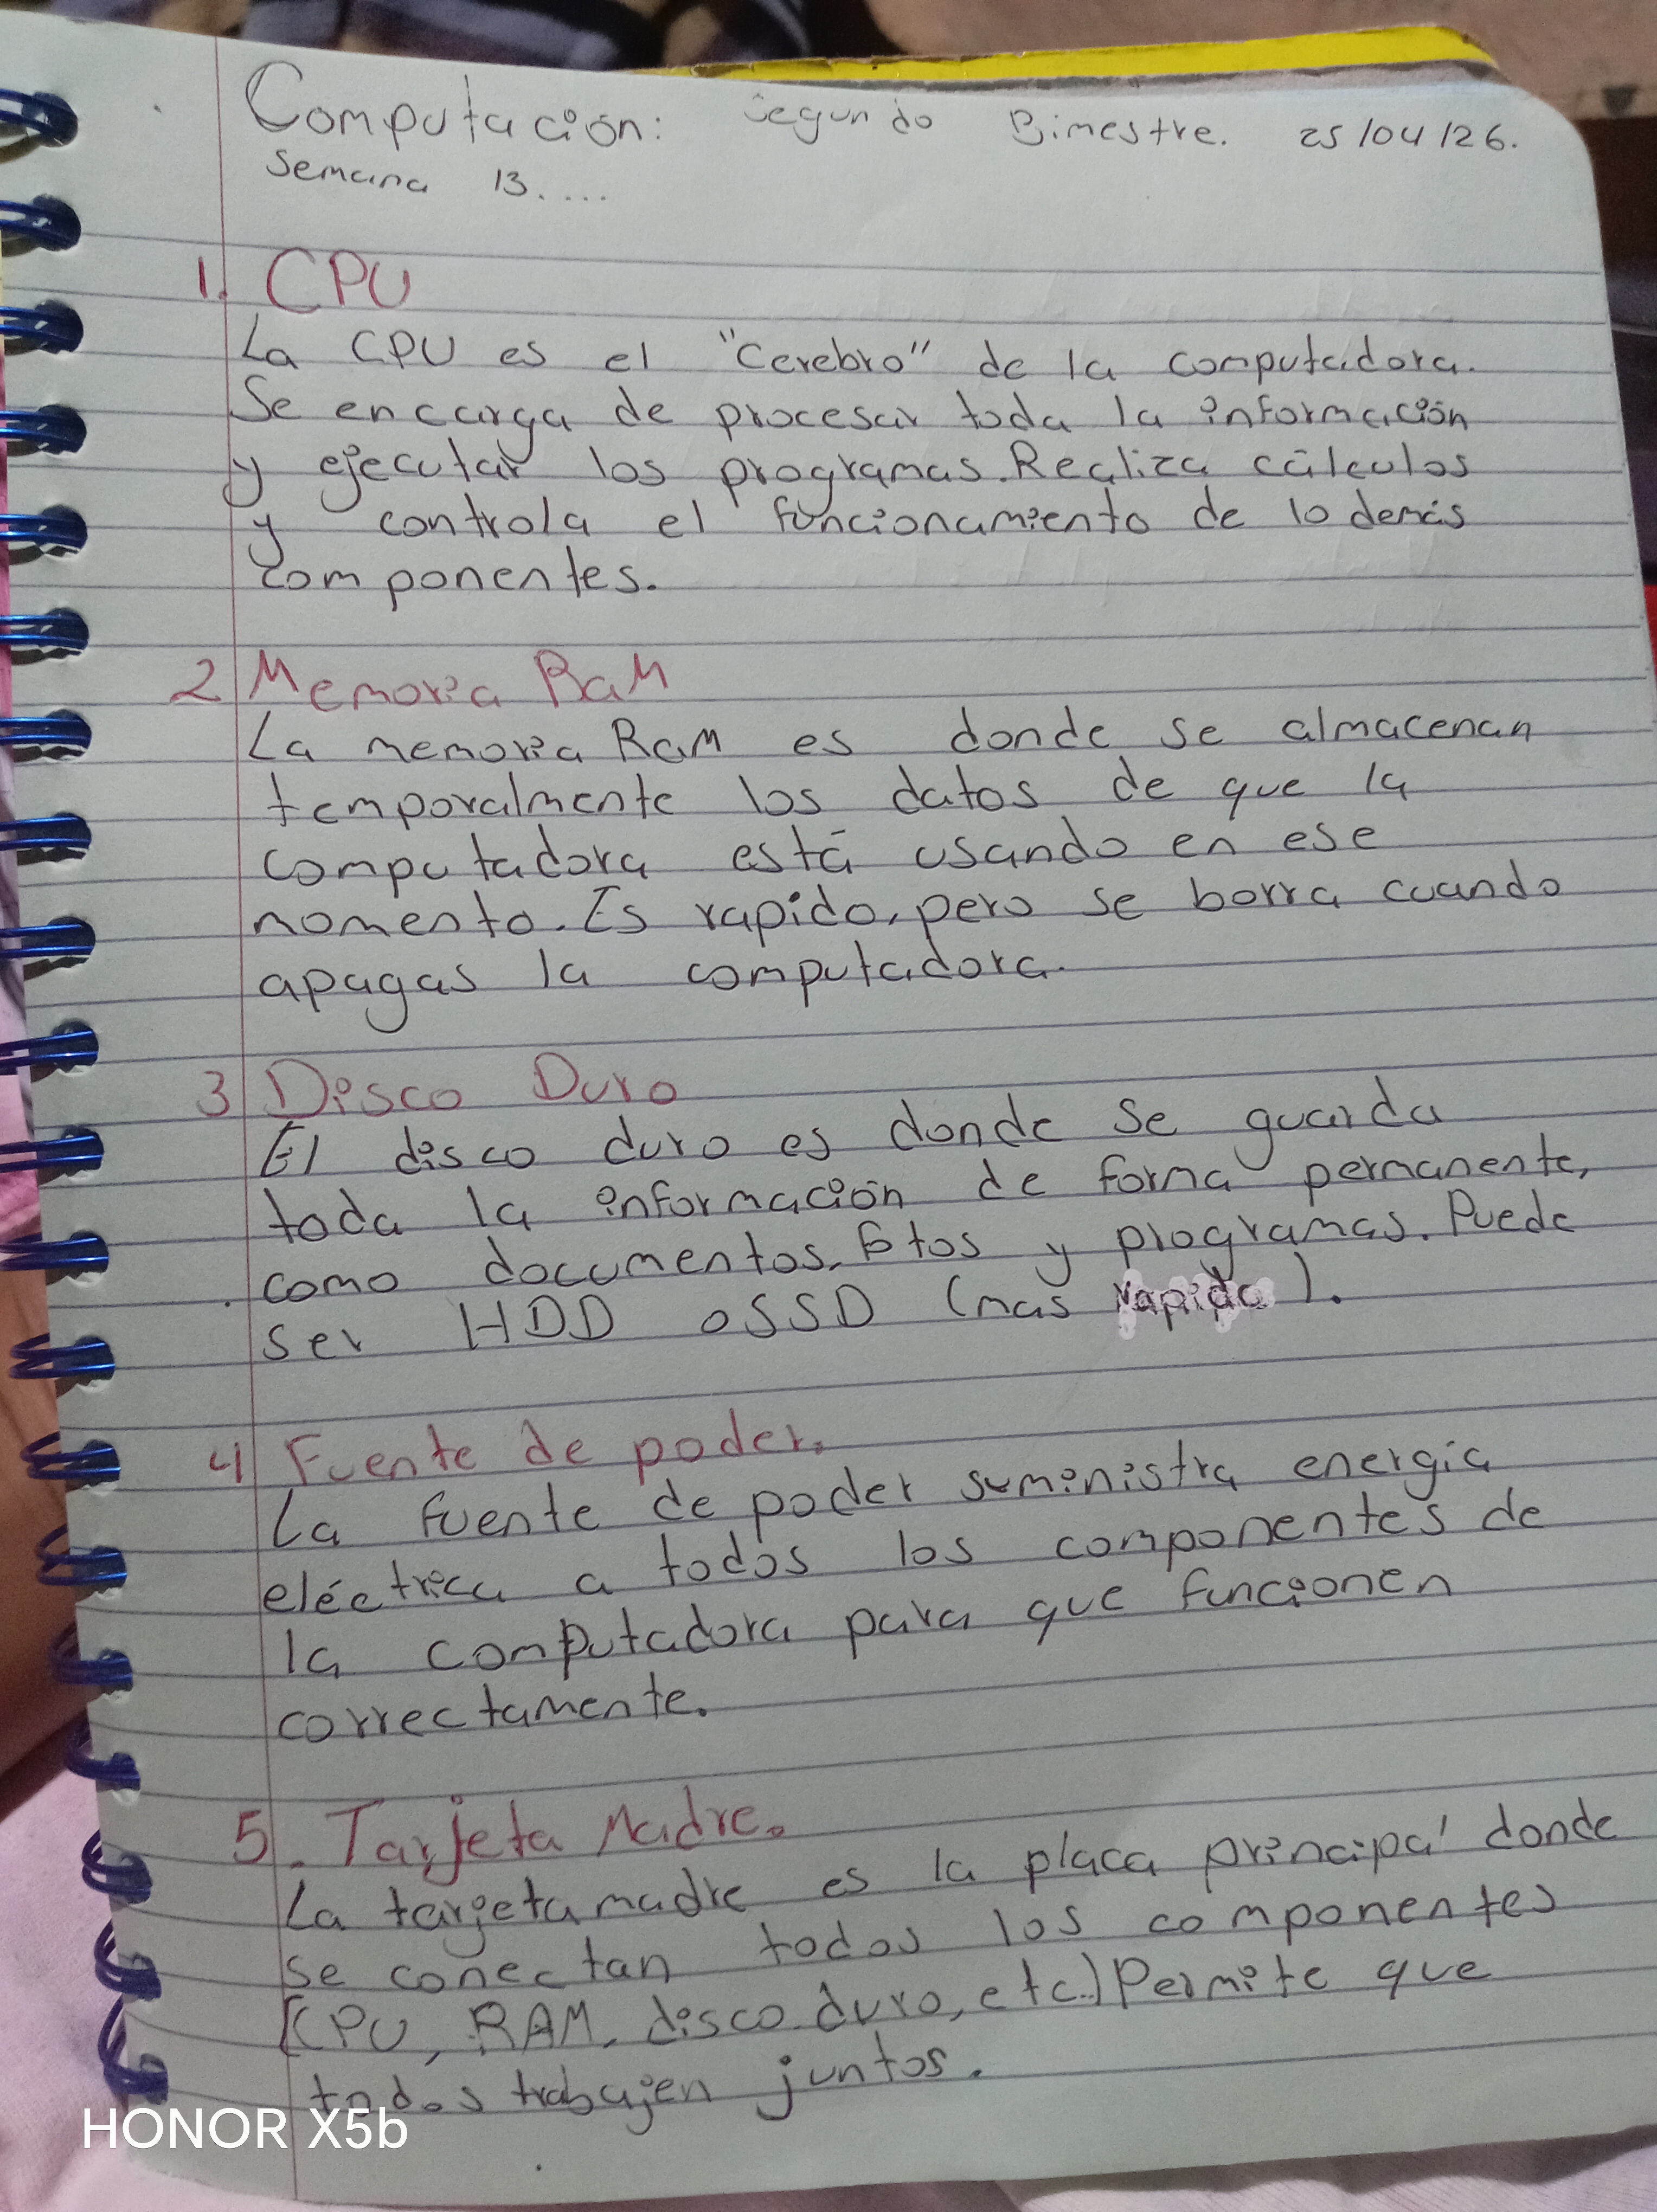 Computación: Segundo Bimestre. 25/04/26.
Semana 13....
1. CPU
La CPU es el "Cerebro" de la computadora.
Se encarga de procesar toda la información
y ejecutar los programas. Realiza cálculos
y controla el funcionamiento de lo demás
componentes.
2 Memoria RaM
La memoria RaM es donde se almacenan
temporalmente los datos de que la
computadora está usando en ese
momento. Es rapido, pero se borra cuando
apagas la computadora.
3 Disco Duro
El disco duro es donde se guarda
toda la información de forma permanente,
como documentos, fotos y programas. Puede
ser HDD o SSD (mas rapido).
4 Fuente de poder.
La fuente de poder suministra energia
eléctrica a todos los componentes de
la computadora para que funcionen
correctamente.
5. Tarjeta Madre.
La tarjeta madre es la placa principal donde
se conectan todos los componentes
(CPU, RAM, disco duro, etc.) Permite que
todos trabajen juntos.
HONOR X5b